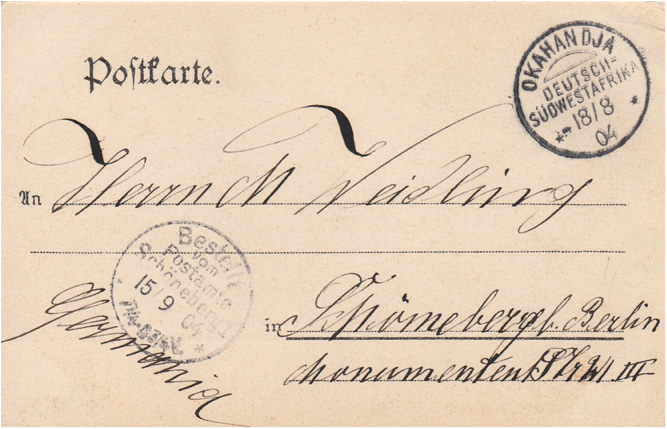 Postkarte.
OKAHANDJA
DEUTSCH-
SÜDWESTAFRIKA
18/8
04
An Herrn M Weidling
Bestellt
vom
Postamte
Schöneberg 1
15 9 04
Germania
in Schöneberg b. Berlin
Monumenten Str
III